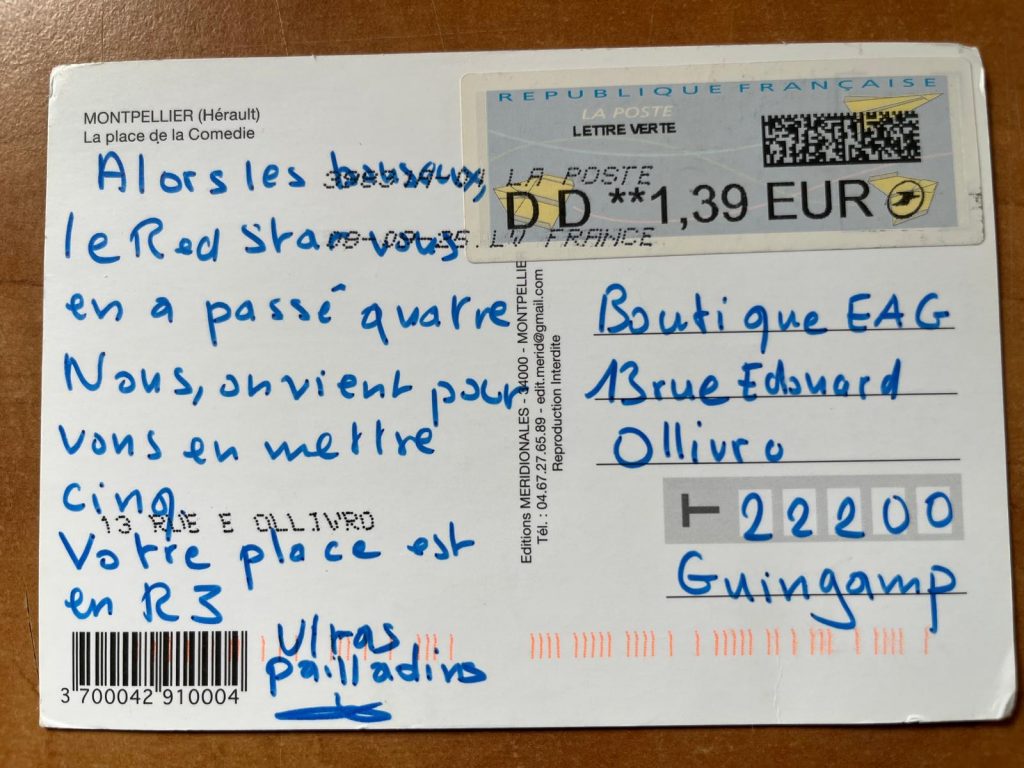 MONTPELLIER (Hérault)
La place de la Comedie
REPUBLIQUE FRANÇAISE
LA POSTE
LETTRE VERTE
DD **1,39 EUR
LA POSTE
LV FRANCE
Alors les bouseux,
le Red Star vous
en a passé quatre
Nous, on vient pour
vous en mettre
cinq
13 RUE E OLLIVRO
Votre place est
en R3
Ulras
pailladins
3 700042 910004
Editions MERIDIONALES - 34000 - MONTPELLIE
Tél. : 04.67.27.65.89 - edit.merid@gmail.com
Reproduction Interdite
Boutique EAG
13 rue Edouard
Ollivro
T 22200
Guingamp